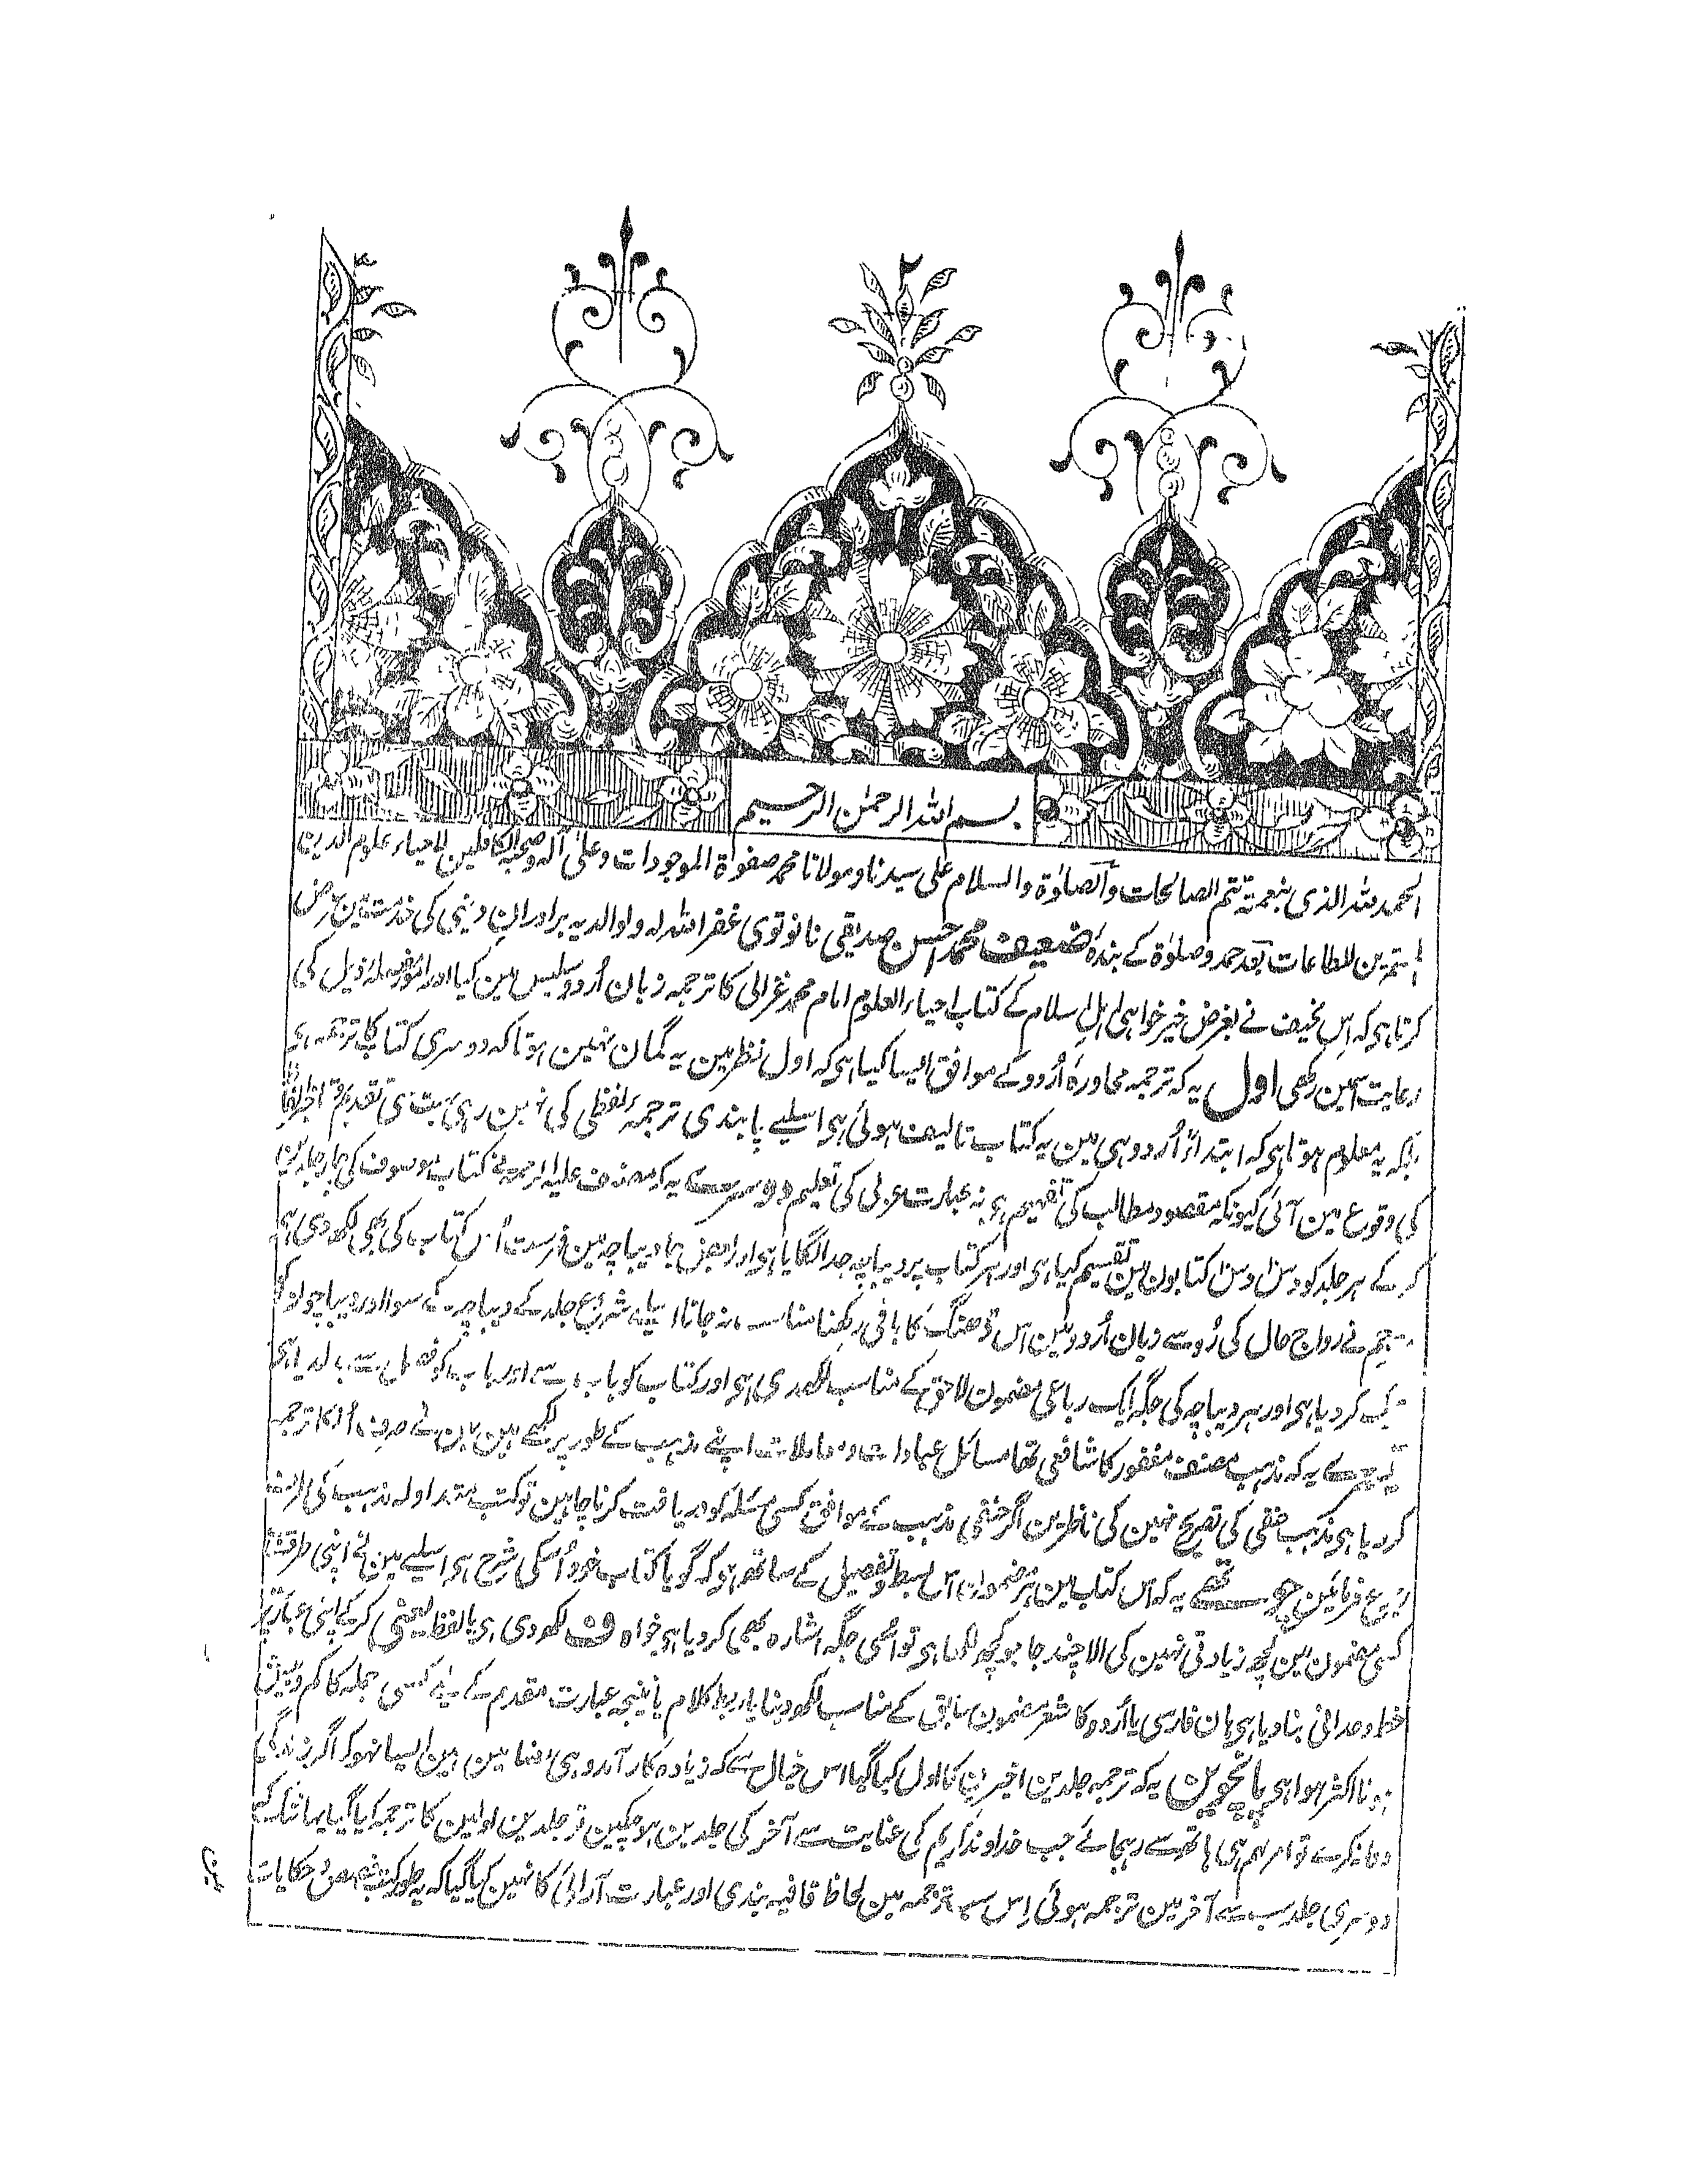 ۲
بسم اللہ الرحمٰن الرحیم
الحمد للہ الذی بنعمتہ تتم الصالحات والصلوٰۃ والسلام علی سیدنا ومولانا محمد صفوۃ الموجودات وعلیٰ آلہ وصحبہ الکافلین لاحیاء علوم الدین
المتمرین للطاعات بعد حمد وصلوٰۃ کے بندۂ ضعیف محمد احسن صدیقی نانوتوی غفر اللہ لہ ولوالدیہ برادران دینی کی خدمت مین عرض
کرتا ہی کہ اِس نحیف نے بغرض خیر خواہی اہل اسلام کے کتاب احیاء العلوم امام محمد غزالی کا ترجمہ زبان اُردو سلیس مین کیا اور امور مفصلہ ذیل کی
رعایت اسمین رکھی اول یہ کہ ترجمہ محاورۂ اُردو کے موافق ایسا کیا ہی کہ اول نظر مین یہ گمان نہین ہوتا کہ دوسری کتاب کا ترجمہ ہی
بلکہ یہ معلوم ہوتا ہی کہ ابتداءً اُردو ہی مین یہ کتاب تالیف ہوئی ہی اسلیے پابندی ترجمہ لفظی کی نہین رہی بہت سی تقدیم و تاخیر الفاظ
کی وقوع مین آئی کیونکہ مقصود مطالب کی تفہیم ہی نہ عبارت عربی کی تعلیم دوسرے یہ کہ مصنف علیہ الرحمہ نے کتاب موصوف کی چار جلدین
کر کے ہر جلد کو دس دس کتابون مین تقسیم کیا ہی اور ہر کتاب پر دیباچہ جدا لگایا ہی اور بعض جا دیباچہ مین فہرست اُس کتاب کی بھی لکھ دی ہی
مترجم نے رواج حال کی رُو سے زبان اُردو مین اس ڈھنگ کا باقی رکھنا مناسب نہ جانا اسلیے شروع جلد کے دیباچہ کے سوا اور دیباچون کو
ترک کر دیا ہی اور ہر دیباچہ کی جگہ ایک رباعی مضمون لاحق کے مناسب لکھدی ہی اور کتاب کو باب سے اور باب کو فصل سے بدلدیا ہی
تیسرے یہ کہ مذہب مصنف مغفور کا شافعی تھا مسائل عبادات و معاملات اپنے مذہب کے طور پر لکھے ہین مین نے صرف اُنکا ترجمہ
کر دیا ہی مذہب حنفی کی تصریح نہین کی ناظرین اگر حنفی مذہب کے موافق کسی مسئلہ کو دریافت کرنا چاہین تو کتب متداولہ مذہب کی طرف
رجوع فرمائین چوتھے یہ کہ اس کتاب مین ہر مضمون اس بسط و تفصیل کے ساتھ ہی کہ گویا کتاب خود اُسکی شرح ہی اسلیے مین نے اپنی طرف سے
کسی مضمون مین کچھ زیادتی نہین کی الا چند جا جو کچھ لکھا ہی تو اُسی جگہ اشارہ بھی کر دیا ہی خواہ ف لکھ دی ہی یا لفظ یعنی کر کے اپنی عبارت پر
خط وحدانی بنا دیا ہی ہان فارسی یا اُردو کا شعر مضمون سابق کے مناسب لکھ دینا یا ربط کلام یا نتیجہ عبارت متقدم کے لیے کسی جملہ کا کم و بیش
ہونا اکثر ہوا ہی پانچوین یہ کہ ترجمہ جلدین اخیرین کا اول کیا گیا اس خیال سے کہ زیادہ کارآمد وہی مضامین ہین ایسا نہو کہ اگر زندگی
وفا نکرے تو امر اہم ہی ہاتھ سے رہجائے جب خداوند کریم کی عنایت سے آخر کی جلدین ہو چکین تو جلدین اولین کا ترجمہ کیا گیا یہانتک کہ
دوسری جلد سب سے آخر مین ترجمہ ہوئی اِس سب ترجمہ مین لحاظ قافیہ بندی اور عبارت آرائی کا نہین کیا گیا کہ یہ طور کتب قصص و حکایات